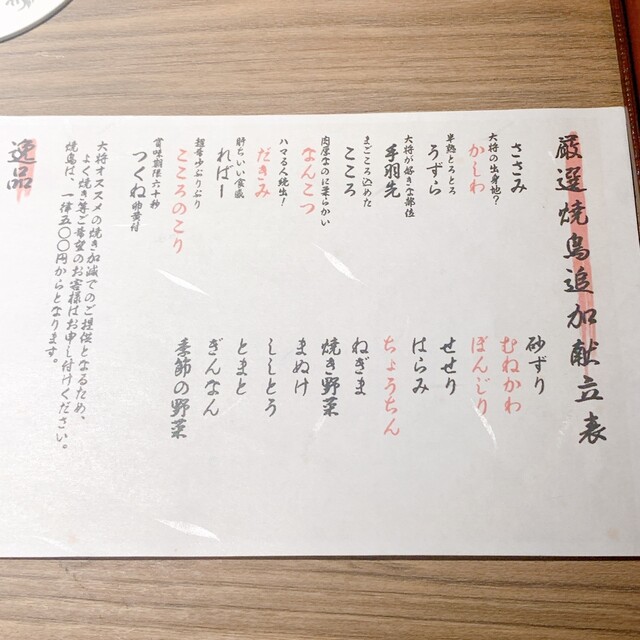 厳選焼鳥追加献立表
ささみ
大将の出身地?
かしわ
半熟とろとろ
うずら
大将が好きな部位
手羽先
まごころ込めた
こころ
肉厚なのに柔らかい
なんこつ
ハマる人続出!
だきみ
肝ちいい食感
ればー
超希少ぷりぷり
こころのこり
賞味期限六十秒
つくね 卵黄付
砂ずり
むねかわ
ぼんじり
せせり
はらみ
ちょうちん
ねぎま
焼き野菜
まぬけ
ししとう
とまと
ぎんなん
季節の野菜
大将オススメの焼き加減でのご提供となるため、
よく焼き等ご希望のお客様はお申し付けください。
焼鳥は、一律五〇〇円からとなります。
逸品